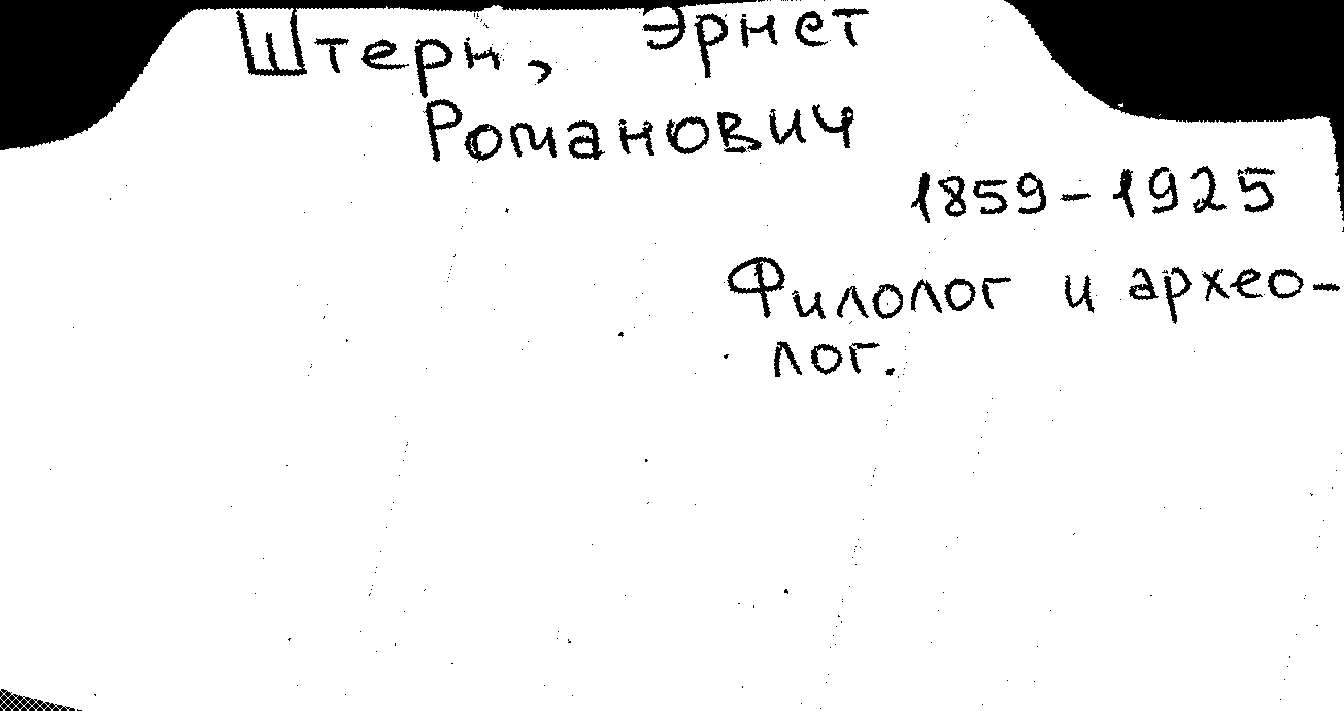 Штерн, Эрнст
Романович
1859-1925
Филолог и архео-
лог.